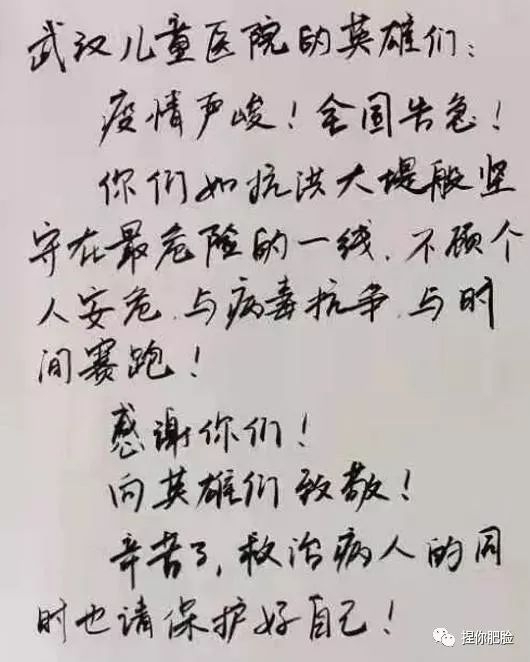 武汉儿童医院的英雄们:
疫情严峻!全国告急!
你们如抗洪大堤般坚
守在最危险的一线,不顾个
人安危,与病毒抗争,与时
间赛跑!
感谢你们!
向英雄们致敬!
辛苦了,救治病人的同
时也请保护好自己!
捏你肥脸